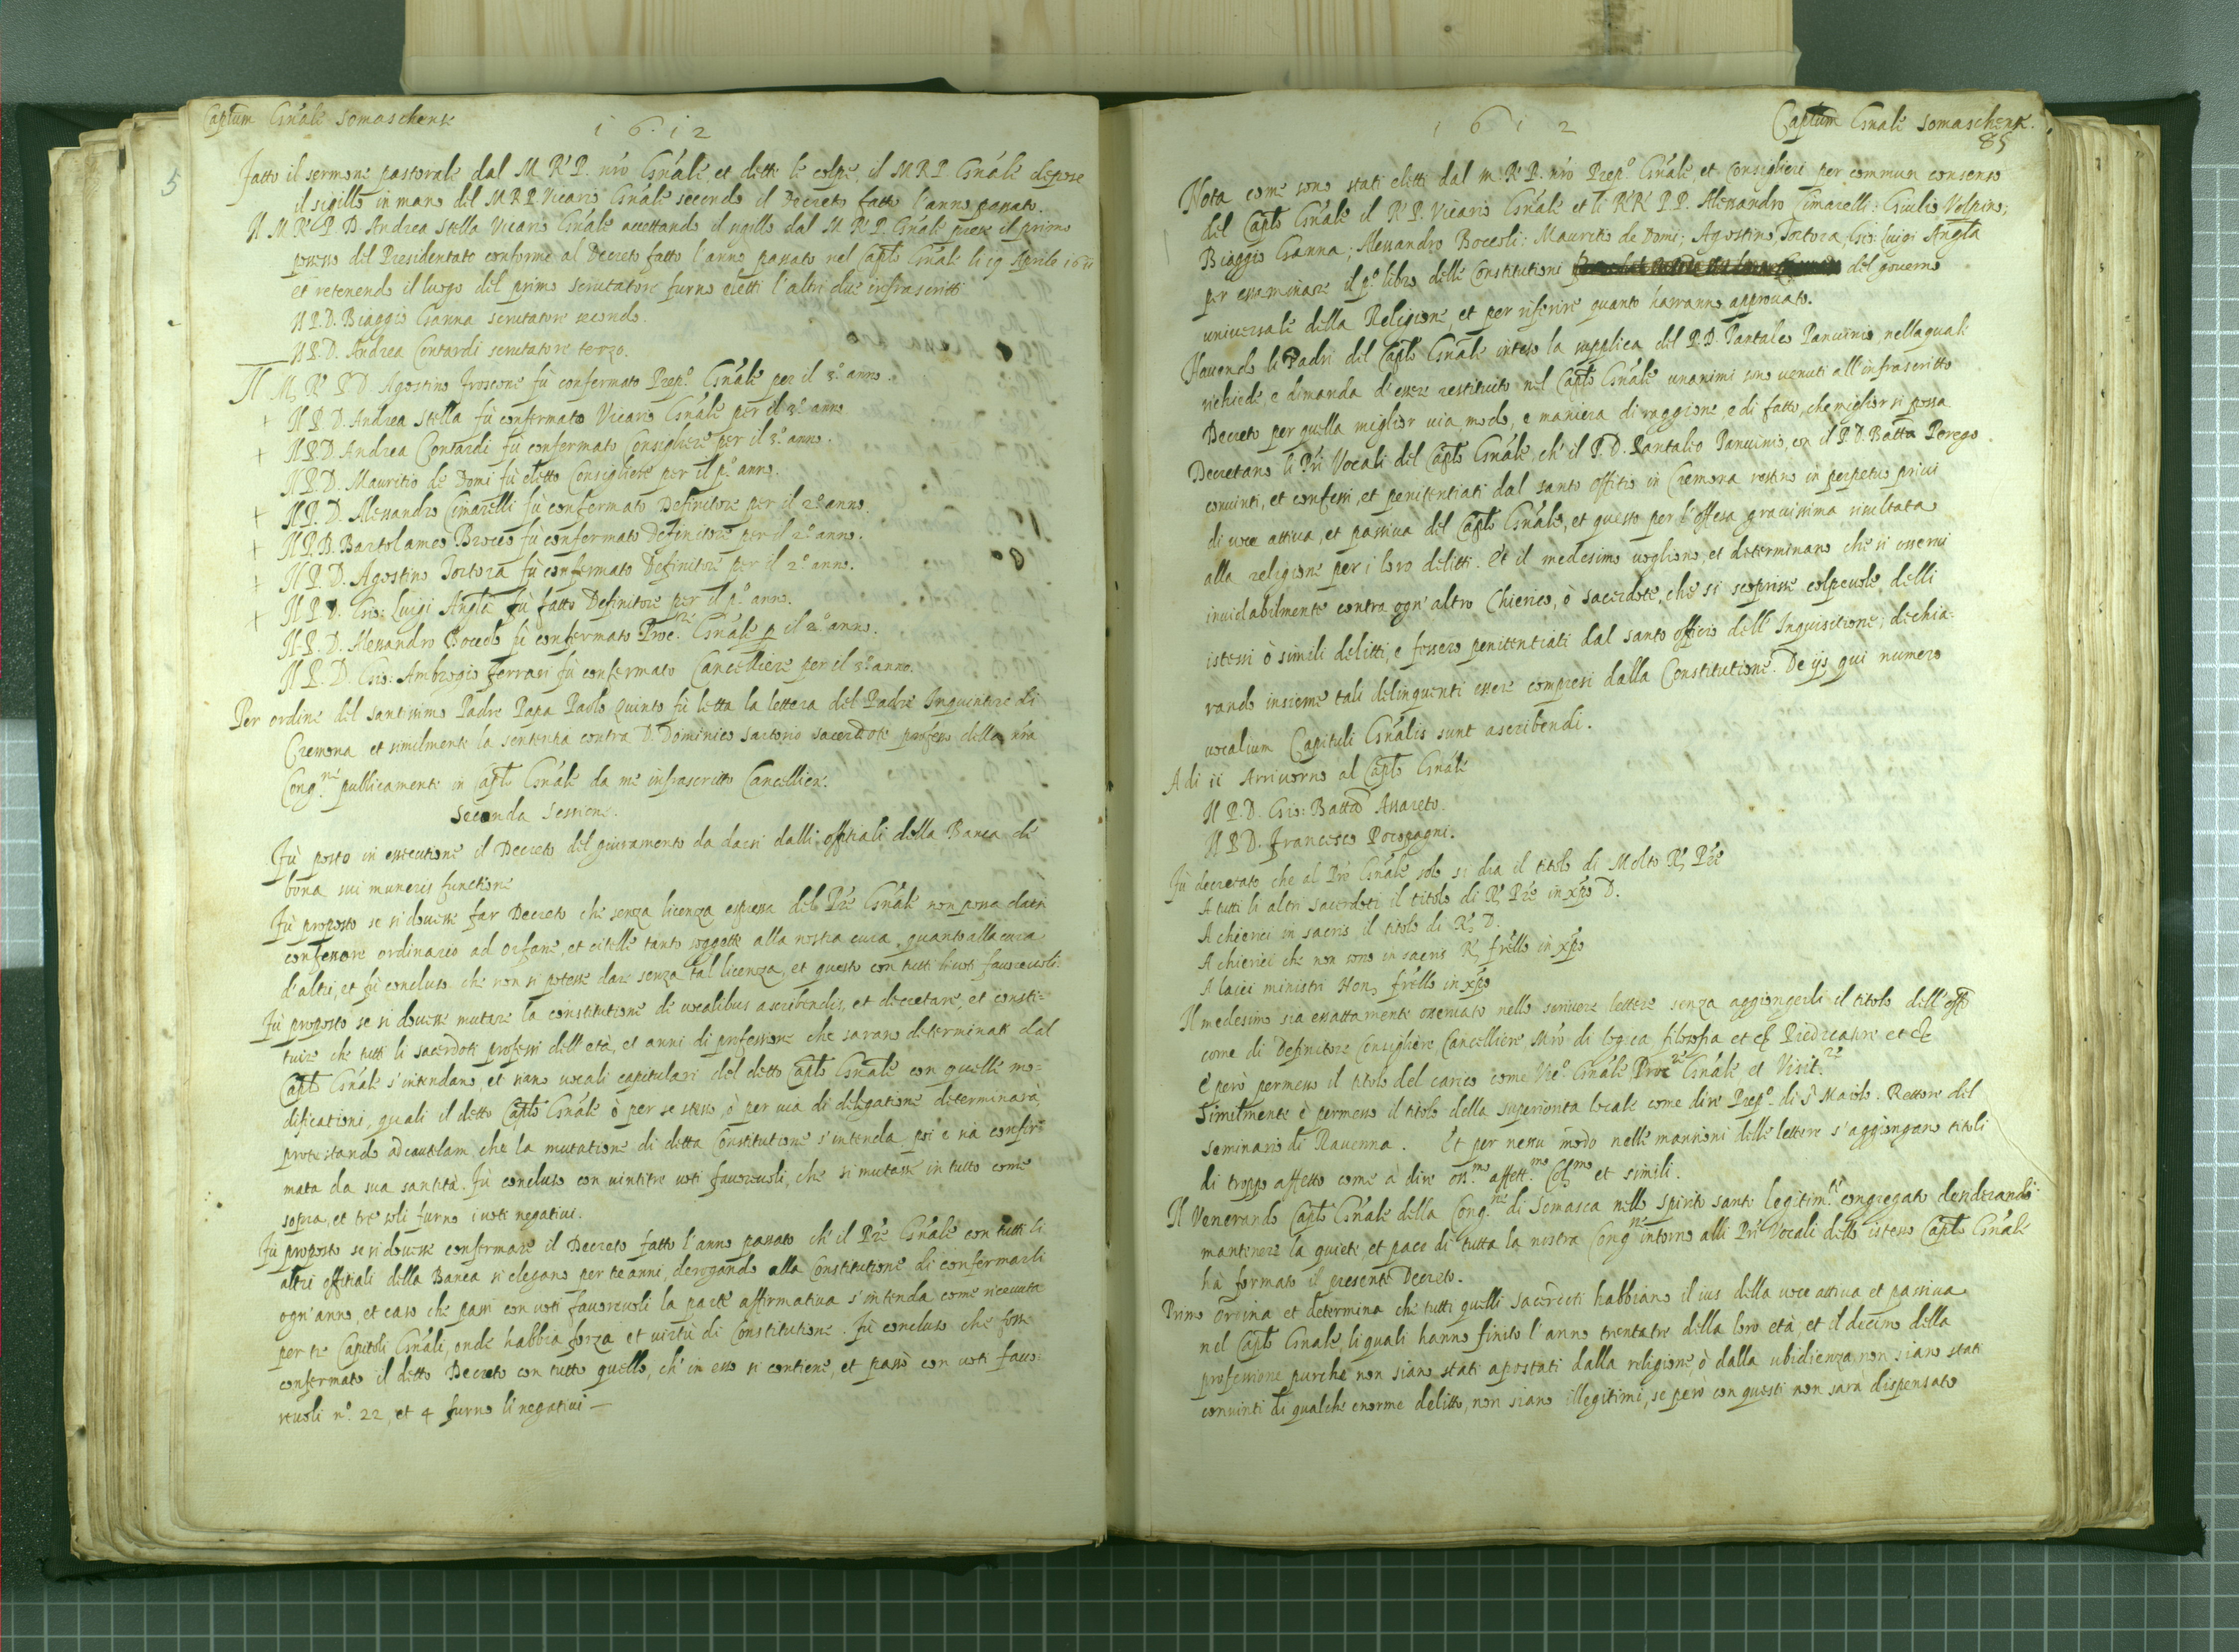 Captum Gnāle somaschenſe
1612
Fatto il sermone pastorale dal M. R. P. nr̃o Gnāle, et dette le colpe, il M R P. Gnāle depose
il sigillo in mano del M R P. Vicario Gnāle secondo il Decreto fatto l'anno passato.
Il M. R. P. D. Andrea Stella Vicario Gnāle accettando il sigillo dal M. R. P. Gnāle prese il primo
possesso del Presidentato conforme al Decreto fatto l'anno passato nel Caplo Gnāle li 19 Aprile 1611
et retenendo il luogo del primo scrutatore furno eletti l'altri due infrascritti
Il P. D. Biaggio Ganna scrutatore secondo.
Il P. D. Andrea Contardi scrutatore terzo.
Il M. R. P. D. Agostino Froscone fù confermato Prep.o Gnāle per il 3.o anno.
+ Il P. D. Andrea Stella fù confermato Vicario Gnāle per il 3.o anno
+ Il P. D. Andrea Contardi fù confermato Consigliere per il 3.o anno.
Il P. D. Mauritio de Domi fù eletto Consigliere per il p.o anno.
+ Il P. D. Alessandro Cimarelli fù confermato Definitore per il 2.o anno.
+ Il P. D. Bartolameo Brocco fù confermato Definitore per il 2.o anno.
+ Il P. D. Agostino Tortora fù confermato Definitore per il 2.o anno.
+ Il P. D. Gio: Luigi Angla fù fatto Definitore per il p.o anno.
Il P. D. Alessandro Boccolo fù confermato Proc.re Gnāle p il 2.o anno.
Il P. D. Gio: Ambrogio Ferrari fù confermato Cancelliere per il 3.o anno.
Per ordine del santissimo Padre Papa Paolo Quinto fù letta la lettera del Padre Inquisitore di
Cremona et similmente la sentenza contra D. Dominico Sartorio sacerdote professo della nr̃a
Cong.ne publicamente in Caplo Gnāle da me infrascritto Cancelliere.
Seconda sessione.
Fù posto in essecutione il Decreto del giuramento da darsi dalli offitiali della Banca de
bona sui muneris functione
Fù proposto se si dovesse far Decreto che senza licenza espressa del Prē Gnāle non possa darsi
confessore ordinario ad orfane, et citelle tanto soggette alla nostra cura, quanto alla cura
d'altri, et fù concluso che non si potesse dare senza tal licenza, et questo con tutti li voti favorevoli.
Fù proposto se si dovesse mutare la constitutione de vocalibus ascribendis, et decretare, et consti=
tuire che tutti li sacerdoti professi dell'età, et anni di professione che sarano determinati dal
Caplo Gnāle s'intendano, et siano vocali capitulari del detto Caplo Gnāle con quelle mo=
dificationi, quali il detto Caplo Gnāle ò per se stesso, ò per via di delegatione determinarà
protestando ad cautelam che la mutatione di detta Constitutione s'intenda poi e sia confir=
mata da sua santità. Fù concluso con vintitre voti favorevoli, che si mutasse in tutto come
sopra, et tre soli furno i voti negativi.
Fù proposto se si dovesse confermare il Decreto fatto l'anno passato ch'il Prē Gnāle con tutti li
altri offitiali della Banca si elegano per tre anni, derogando alla Constitutione di confermarli
ogn'anno, et caso che passi con voti favorevoli la parte affirmativa s'intenda come ricevuta
per tre Capitoli Gnāli, onde habbia forza et virtù di Constitutione. Fù concluso che fosse
confermato il detto Decreto con tutto quello, ch'in esso si contiene, et passò con voti favo=
revoli n.o 22, et 4 furno li negativi —
1612
Captum Gnāle somaschenſe.
85
Nota come sono stati eletti dal m. R. P. nr̃o Prep.o Gnāle et Consiglieri per commun consenso
del Caplo Gnāle il R. P. Vicario Gnāle et li RR. PP. Alessandro Cimarelli: Giulio Volpino;
Biaggio Ganna; Alessandro Boccoli: Mauritio de Domi; Agostino Tortora, Gio: Luigi Angla
per essaminare il p.o libro delle Constitutioni del governo
universale della Religione, et per riferire quanto havranno approvato.
Havendo li Padri del Caplo Gnāle inteso la supplica del P. D. Pantaleo Panvinio nella quale
richiede, e dimanda d'essere restituito nel Caplo Gnāle unanimi sono venuti all'infrascritto
Decreto per quella miglior via, modo, e maniera di raggione, e di fatto, che miglior si possa
Decretano li Prī Vocali del Caplo Gnāle ch'il P. D. Pantaleo Panvinio, con il P. D. Batta Perego
convinti, et confessi, et penitentiati dal santo offitio in Cremona restino in perpetuo privi
di voce attiva, et passiva del Caplo Gnāle, et questo per l'offesa gravissima risultata
alla religione per i loro delitti. Et il medesimo vogliono, et determinano che si osservi
inviolabilmente contra ogn'altro Chierico, ò sacerdote, che si scoprisse colpevole delli
istessi ò simili delitti, e fossero penitentiati dal santo officio dell'Inquisitione; dechia=
rando insieme tali delinquenti essere compresi dalla Constitutione. De ijs qui numero
vocalium Capituli Gnālis sunt ascribendi.
A di 11 Arrivorno al Caplo Gnāle
Il P. D. Gio: Batta Assareto.
Il P. D. Francesco Pocopagni.
Fù decretato che al Prē Gnāle solo si dia il titolo di Molto R. Prē
A tutti li altri sacerdoti il titolo di R. Prē in xp̄o D.
A chierici in sacris il titolo di R. D.
A chierici che non sono in sacris R. frēllo in xp̄o
A laici ministri Hon. frēllo in xp̄o
Il medesimo sia essattamente osservato nello scrivere lettere senza aggiongerli il titolo dell'offo
come di Definitore Consigliere, Cancelliere Mrō di logica filosofia et c. Predicatore et c.
E però permesso il titolo del carico come Vic.o Gnāle Proc.re Gnāle et Visit.re
Similmente è permesso il titolo della superiorità locale come dire Prep.o di S. Maiolo. Rettore del
seminario di Ravenna. Et per nessū modo nelle mansioni delle lettere s'aggiongano titoli
di troppo affetto come à dire oss.mo affett.mo Col.mo et simili.
Il Venerando Caplo Gnāle della Cong.ne di Somasca nello spirito santo legitim.te congregato desiderando
mantenere la quiete, et pace di tutta la nostra Cong.ne intorno alli Prī Vocali dello istesso Caplo Gnāle
hà formato il presente Decreto.
Primo Ordina et determina che tutti quelli sacerdoti habbiano il ius della voce attiva et passiva
nel Caplo Gnāle, li quali hanno finito l'anno trentatre della loro età, et il decimo della
professione purche non siano stati apostati dalla religione, ò dalla ubidienza, non siano stati
convinti di qualche enorme delitto, non siano illegitimi, se però con questi non sarà dispensato